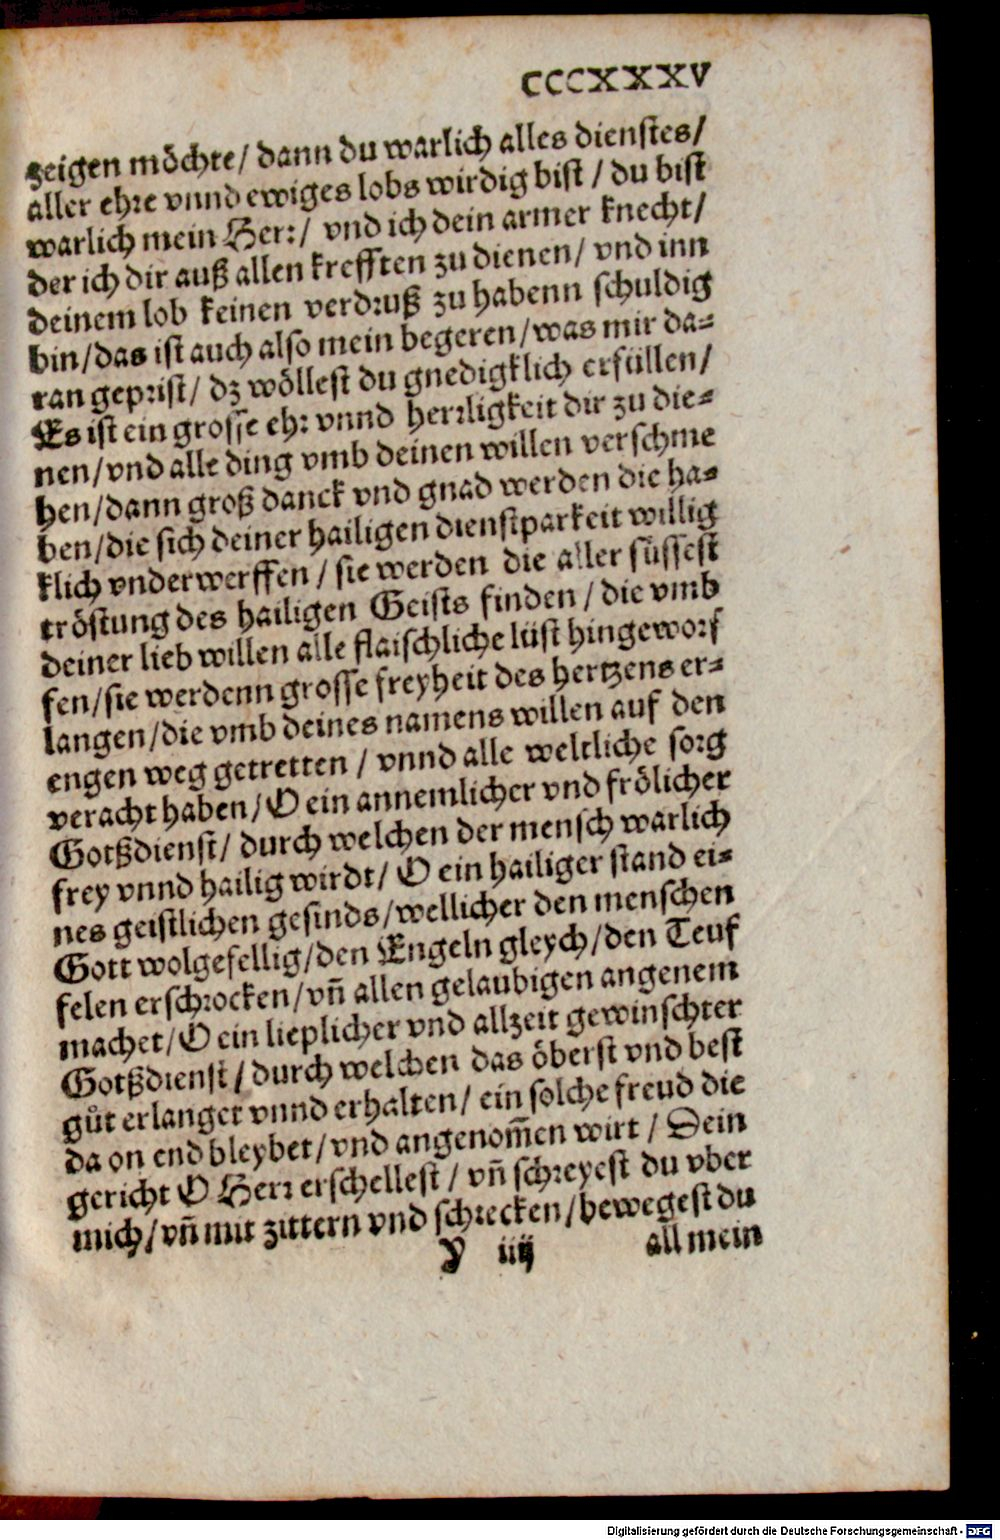 CCCXXXV
zeigen möchte/ dann du warlich alles dienstes/
aller ehre vnnd ewiges lobs wirdig bist / du bist
warlich mein Herr/ vnd ich dein armer knecht/
der ich dir auß allen krefften zu dienen/ vnd inn
deinem lob keinen verdruß zu habenn schuldig
bin/das ist auch also mein begeren/was mir da-
ran geprist/ dz wöllest du gnedigklich erfüllen/
Es ist ein grosse ehr vnnd herrligkeit dir zu die-
nen/vnd alle ding vmb deinen willen verschme
hen/dann groß danck vnd gnad werden die ha-
ben/die sich deiner hailigen dienstparkeit willig
klich vnderwerffen / sie werden die aller süssest
tröstung des hailigen Geists finden / die vmb
deiner lieb willen alle flaischliche lüst hingeworf
fen/sie werdenn grosse freyheit des hertzens er-
langen/die vmb deines namens willen auf den
engen weg getretten / vnnd alle weltliche sorg
veracht haben/O ein annemlicher vnd frölicher
Gotßdienst/ durch welchen der mensch warlich
frey vnnd hailig wirdt/ O ein hailiger stand ei-
nes geistlichen gesinds/wellicher den menschen
Gott wolgefellig/den Engeln gleych/den Teuf
felen erschrocken/vñ allen gelaubigen angenem
machet/O ein lieplicher vnd allzeit gewinschter
Gotßdienst/durch welchen das öberst vnd best
gůt erlanget vnnd erhalten/ ein solche freud die
da on end bleybet/vnd angenom̃en wirt / Dein
gericht O Herr erschellest / vñ schreyest du vber
mich/vñ mit zittern vnd schrecken/bewegest du
Y iiij all mein
Digitalisierung gefördert durch die Deutsche Forschungsgemeinschaft - DFG